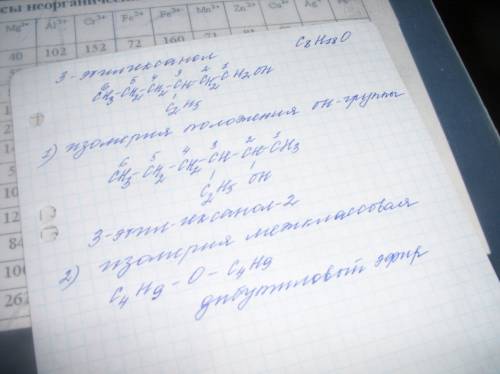 сы неорганичес
Mg²⁺ Al³⁺ Cr³⁺ Fe²⁺ Fe³⁺ Mn²⁺ Zn²⁺
40 102 152 72 160 71
3-этилгексанол C₈H₁₈O
6 5 4 3 2 1
CH₃-CH₂-CH₂-CH-CH₂-CH₂OH
C₂H₅
1) изомерия положения OH-группы
6 5 4 3 2 1
CH₃-CH₂-CH₂-CH-CH-CH₃
C₂H₅ OH
3-этил-гексанол-2
2) изомерия межклассовая
C₄H₉-O-C₄H₉
дибутиловый эфир